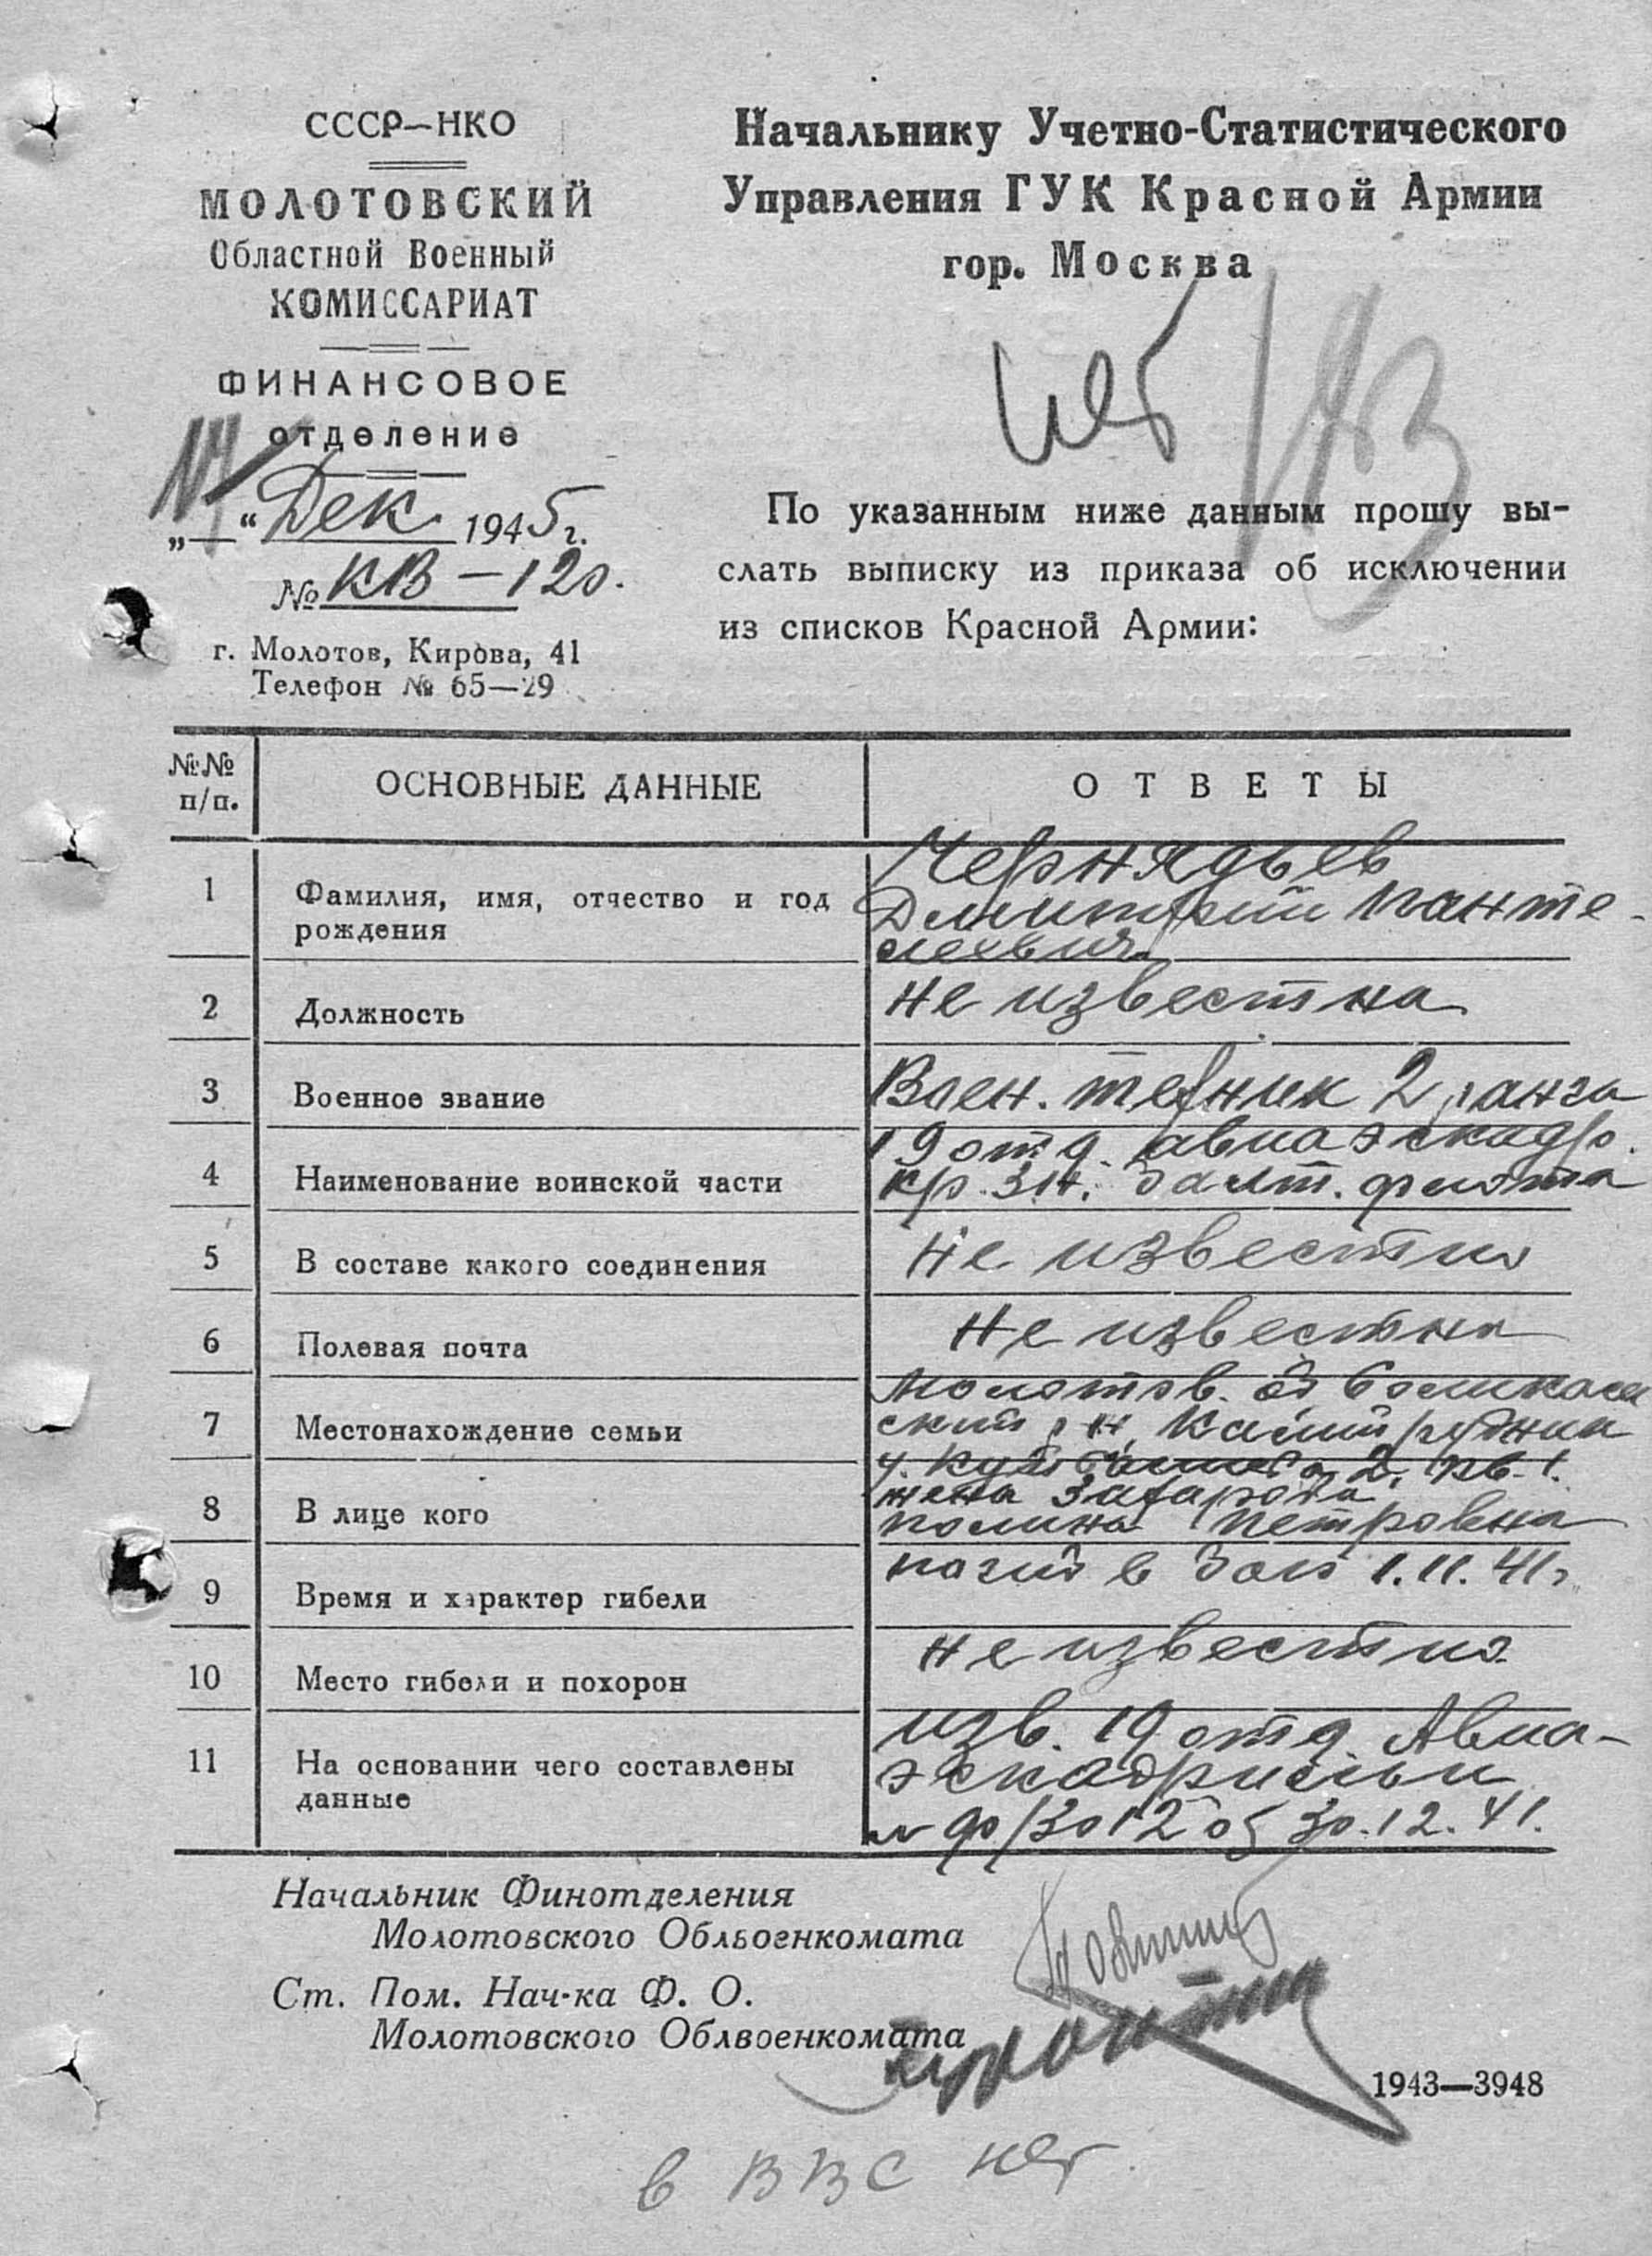 СССР—НКО
МОЛОТОВСКИЙ
Областной Военный
КОМИССАРИАТ
ФИНАНСОВОЕ
отделение
„—“ Дек 1945 г.
№ КВ – 120.
г. Молотов, Кирова, 41
Телефон № 65—29
Начальнику Учетно-Статистического
Управления ГУК Красной Армии
гор. Москва
нет
По указанным ниже данным прошу вы-
слать выписку из приказа об исключении
из списков Красной Армии:
№№ п/п. ОСНОВНЫЕ ДАННЫЕ ОТВЕТЫ
1 Фамилия, имя, отчество и год рождения
Чернядьев
Дмитрий Панте-
леевич
2 Должность не известна
3 Военное звание Воен. техник 2 ранга
4 Наименование воинской части
19 отд. авиаэскадр.
Кр. Зн. Балт. флота
5 В составе какого соединения не известно
6 Полевая почта не известна
7 Местонахождение семьи
Молотов. об Соликам
ский р-н, Калийрудник
у. Куйбышева 2, кв. 1.
8 В лице кого
жена Захарова
Полина Петровна
9 Время и характер гибели погиб в бою 1.11.41г.
10 Место гибели и похорон не известно
11 На основании чего составлены данные
изв. 19 отд. Авиа-
эскадрильи
от 30.12.41.
Начальник Финотделения
Молотовского Облвоенкомата
Ст. Пом. Нач-ка Ф. О.
Молотовского Облвоенкомата
1943—3948
в ВВС нет